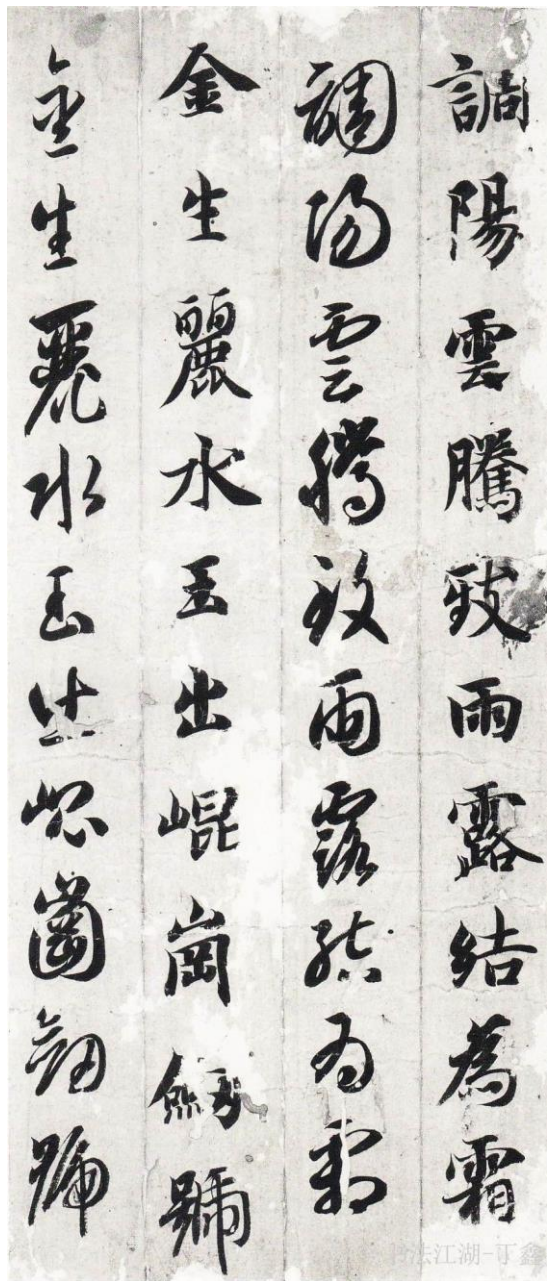 調陽雲騰致雨露結為霜
調陽雲騰致雨露結為霜
金生麗水玉出崐崗劔號
金生麗水玉出崐崗劔號
書法江湖-丁鑫